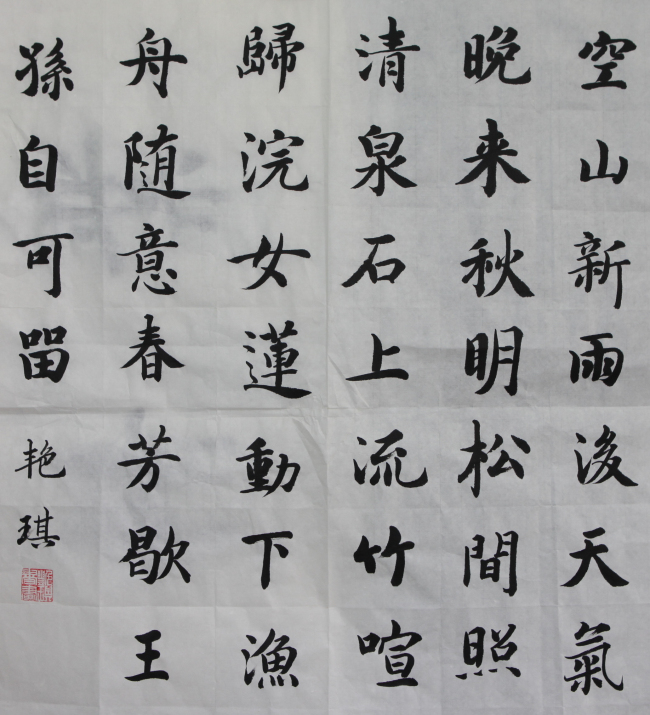 空山新雨後天氣
晚来秋明松間照
清泉石上流竹喧
歸浣女蓮動下漁
舟随意春芳歇王
孫自可留
艳琪